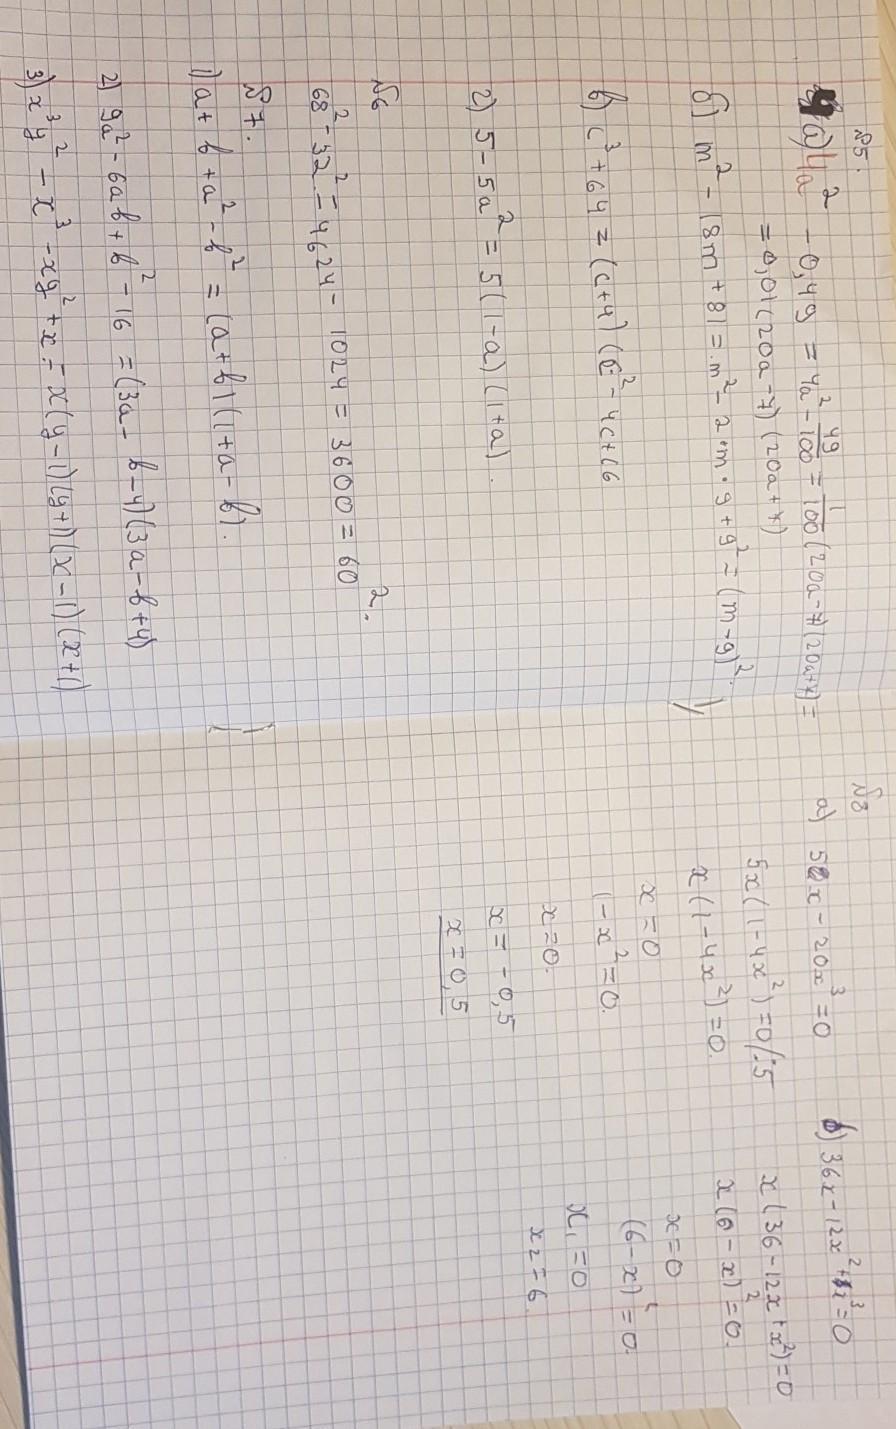 №5.
а) 4a² - 0,49 = 4a² - 49/100 = 1/100 (20a-7)(20a+7) =
= 0,01(20a-7)(20a+7)
б) m² - 18m + 81 = m² - 2·m·9 + 9² = (m-9)².
в) c³ + 64 = (c+4)(c² - 4c+16
г) 5 - 5a² = 5(1-a)(1+a).
№6
68² - 32² = 4624 - 1024 = 3600 = 60².
№7.
1) a + b + a² - b² = (a+b)(1+a-b).
2) 9a² - 6ab + b² - 16 = (3a - b-4)(3a-b+4)
3) x³y² - x³ - xy² + x = x(y-1)(y+1)(x-1)(x+1)
№8
а) 5x - 20x³ = 0
5x(1-4x²)=0/:5
x(1-4x²)=0.
x=0
1-x²=0.
x=0.
x=-0,5
x=0,5
б) 36x - 12x² + x³ = 0
x(36-12x+x²)=0
x(6-x)²=0.
x=0
(6-x)²=0.
x₁=0
x₂=6.